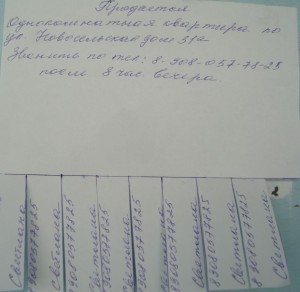 Продается
Однокомнатная квартира по
ул. Новосельская дом 31а
Звонить по тел: 8-908-057-78-25
после 8 час. вечера
Светлана
89080577825
Светлана
89080577825
Светлана
89080577825
Светлана
89080577825
Светлана
89080577825
Светлана
89080577825
Светлана
89080577825
Светлана